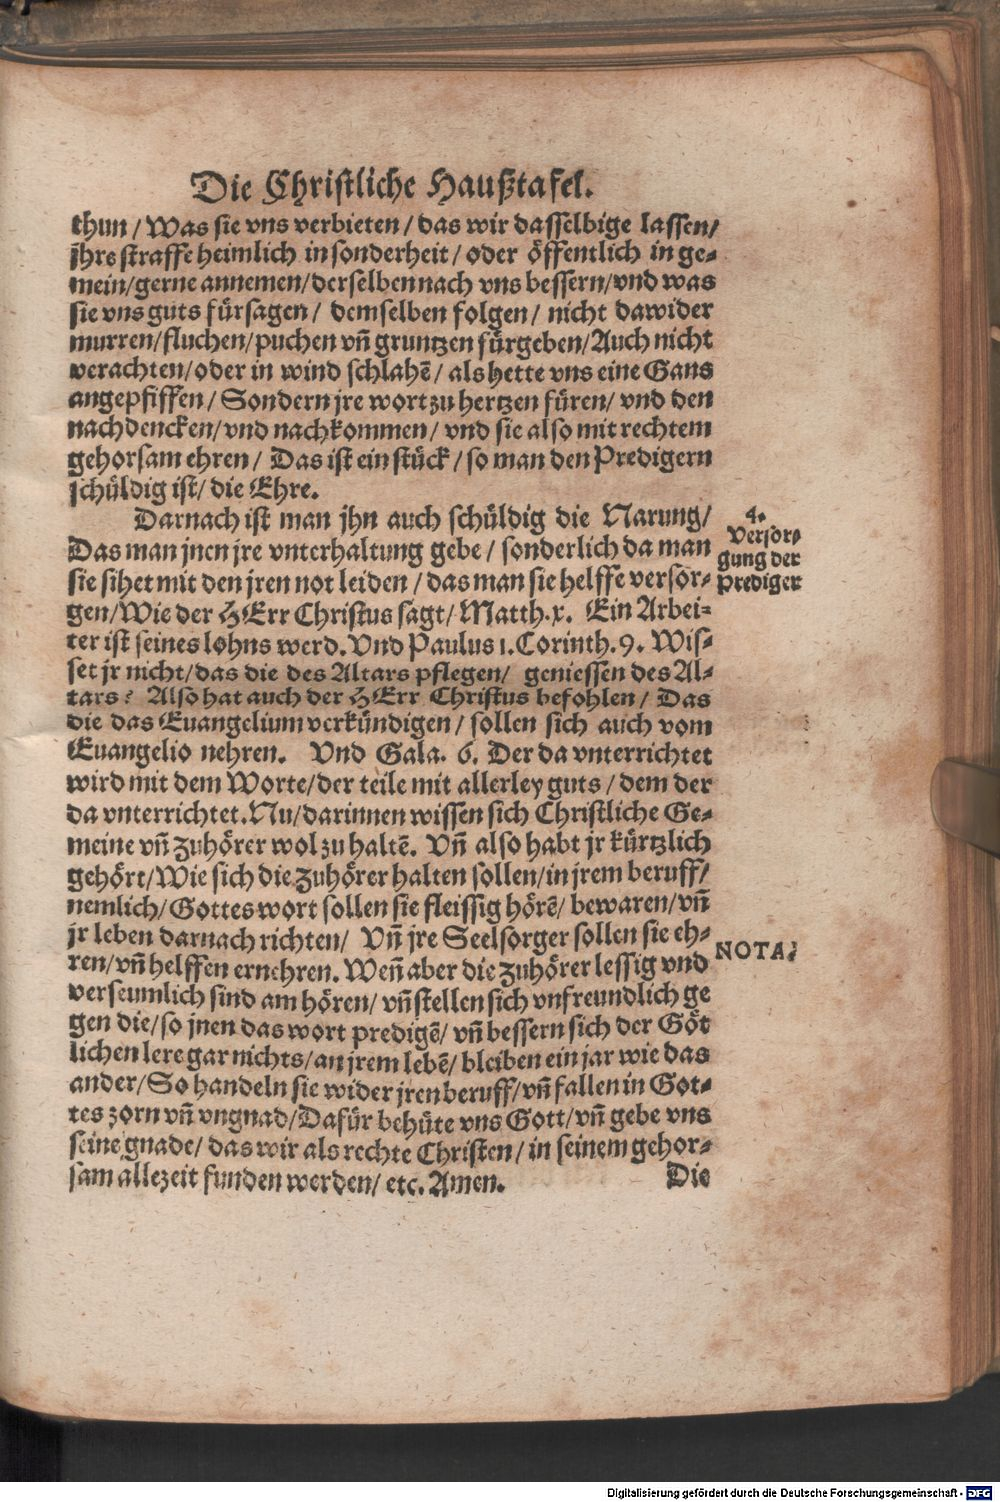 Die Christliche Haußtafel.
thun / Was sie vns verbieten / das wir dasselbige lassen/
jhre straffe heimlich in sonderheit / oder öffentlich in ge-
mein/gerne annemen/derselben nach vns bessern/vnd was
sie vns guts fürsagen / demselben folgen / nicht dawider
murren/fluchen/puchen vñ gruntzen fürgeben/Auch nicht
verachten/oder in wind schlahē / als hette vns eine Gans
angepfiffen / Sondern jre wort zu hertzen füren/ vnd den
nachdencken/vnd nachkommen / vnd sie also mit rechtem
gehorsam ehren / Das ist ein stück / so man den Predigern
schüldig ist/ die Ehre.
Darnach ist man jhn auch schüldig die Narung/
Das man jnen jre vnterhaltung gebe / sonderlich da man
sie sihet mit den jren not leiden / das man sie helffe versor-
gen/Wie der HErr Christus sagt/ Matth.x. Ein Arbei-
ter ist seines lohns werd. Vnd Paulus 1. Corinth. 9. Wis-
set jr nicht/das die des Altars pflegen/ geniessen des Al-
tars? Also hat auch der HErr Christus befohlen/ Das
die das Euangelium verkündigen / sollen sich auch vom
Euangelio nehren. Vnd Gala. 6. Der da vnterrichtet
wird mit dem Worte/der teile mit allerley guts / dem der
da vnterrichtet. Nu/darinnen wissen sich Christliche Ge-
meine vñ zuhörer wol zu haltē. Vñ also habt jr kürtzlich
gehört/Wie sich die zuhörer halten sollen/in jrem beruff/
nemlich/Gottes wort sollen sie fleissig hörē/ bewaren/vñ
jr leben darnach richten/ Vñ jre Seelsorger sollen sie eh-
ren/vñ helffen ernehren. Weñ aber die zuhörer lessig vnd
verseumlich sind am hören/ vñ stellen sich vnfreundlich ge
gen die/so jnen das wort predigē/ vñ bessern sich der Göt
lichen lere gar nichts/an jrem lebē/ bleiben ein jar wie das
ander/So handeln sie wider jren beruff/vñ fallen in Got-
tes zorn vñ vngnad/Dafür behüte vns Gott/vñ gebe vns
seine gnade/ das wir als rechte Christen/ in seinem gehor-
sam allezeit funden werden/ etc. Amen.
Die
4.
Versor-
gung der
Prediger
NOTA:
Digitalisierung gefördert durch die Deutsche Forschungsgemeinschaft - DFG